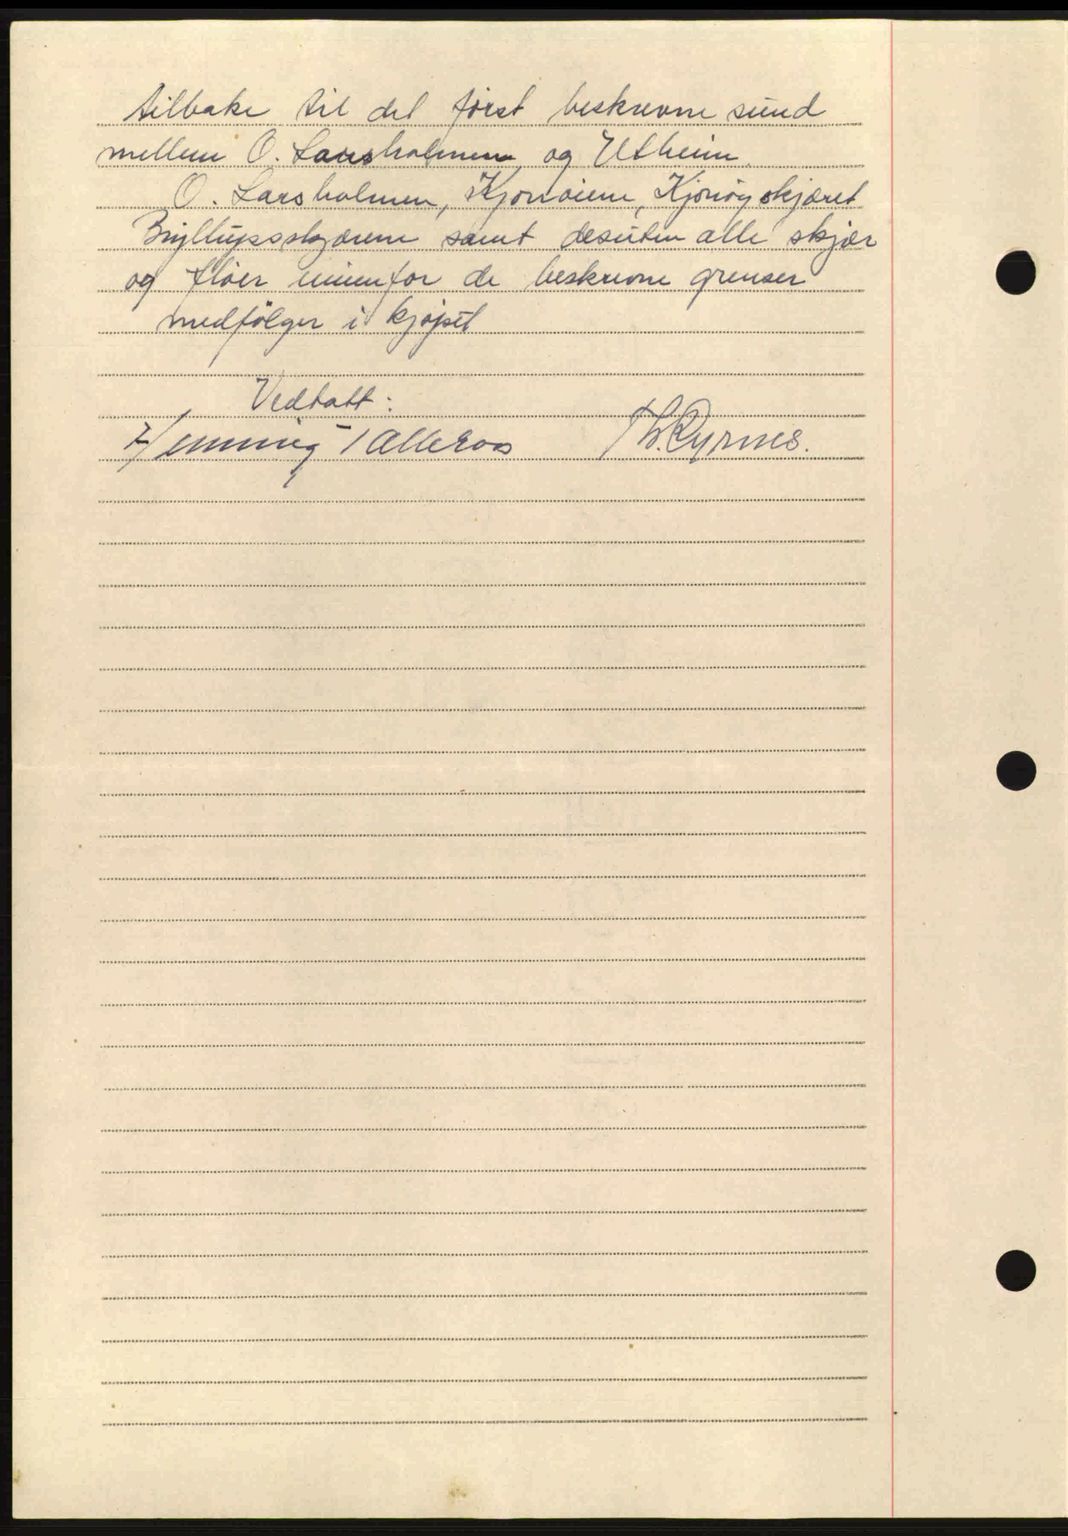 tilbake til det först beskrevne sund
mellem O. Larsholmen og Utheim.
O. Larsholmen, Kjönöiene, Kjönöyskjæret
Bryllupsskjærene samt desuten alle skjær
og flöer innenfor de beskrevne grenser
medfölger i kjöpet
Vedtatt:
Henning Talleraas Th. Ryrnes.